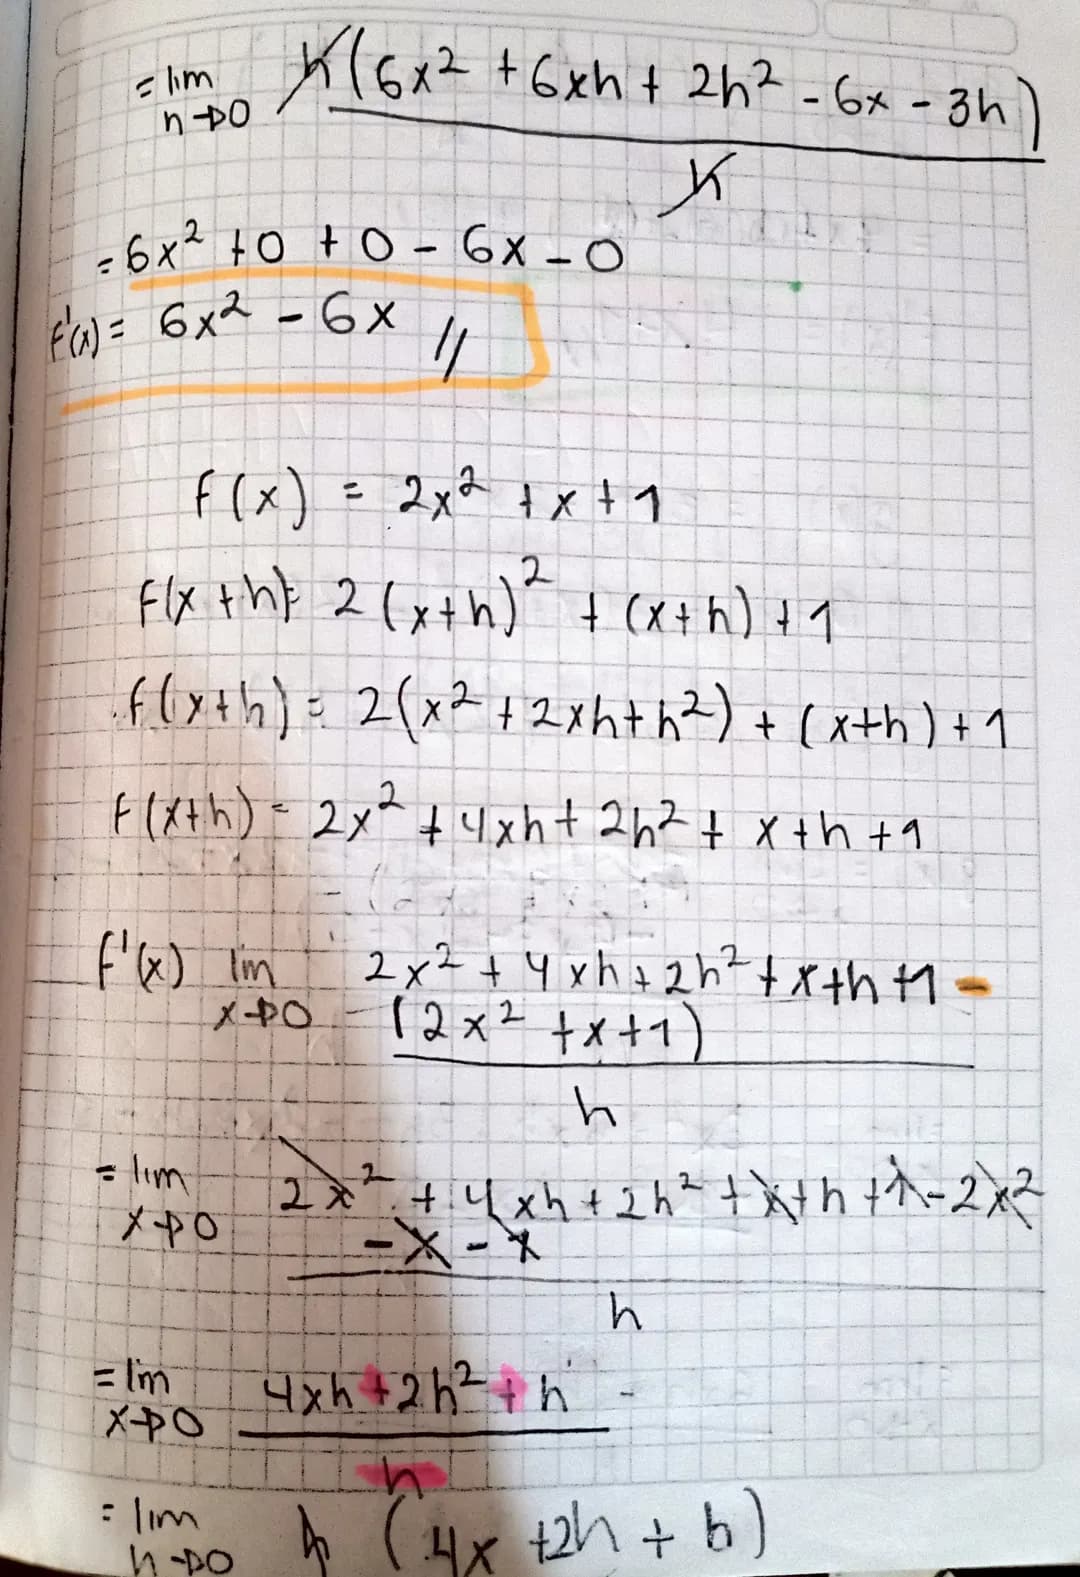 = lim h(6x² + 6xh + 2h² - 6x - 3h)
h→0 h
= 6x² + 0 + 0 - 6x - 0
f'(x) = 6x² - 6x //
f(x) = 2x² + x + 1
f(x+h) = 2(x+h)² + (x+h) + 1
f(x+h) = 2(x² + 2xh + h²) + (x+h) + 1
f(x+h) = 2x² + 4xh + 2h² + x + h + 1
f'(x) lim 2x² + 4xh + 2h² + x + h + 1 -
x→0 (2x² + x + 1)
h
= lim 2x² + 4xh + 2h² + x + h + 1 - 2x²
x→0 - x - 1
h
= lim 4xh + 2h² + h
x→0 h
= lim h (4x + 2h + h)
h→0